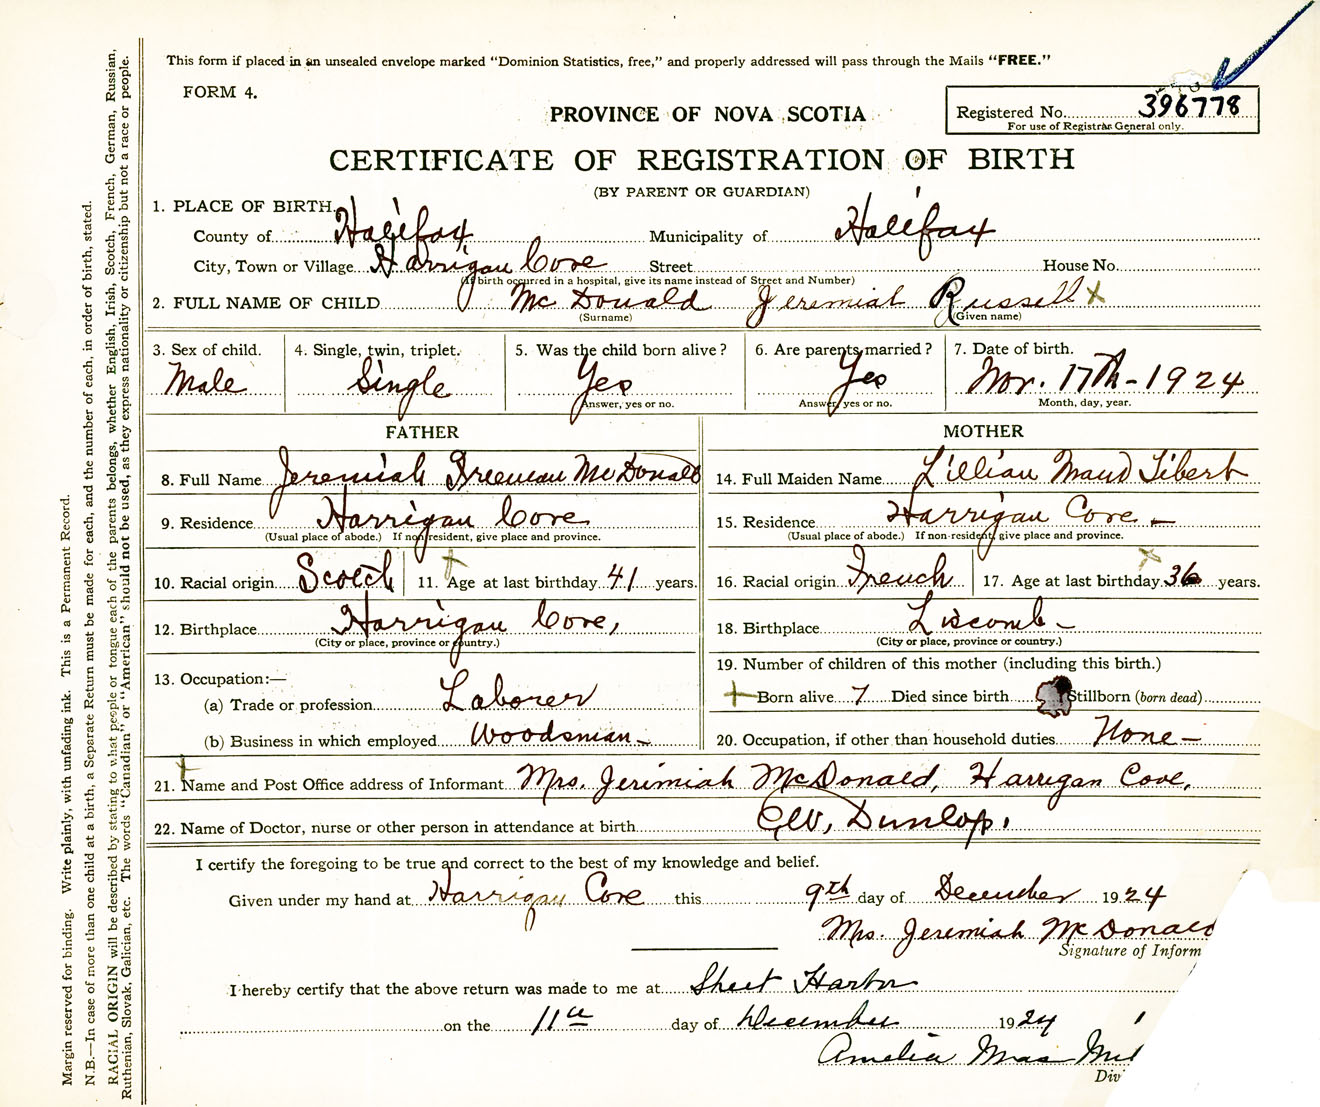 This form if placed in an unsealed envelope marked "Dominion Statistics, free," and properly addressed will pass through the Mails "FREE."
FORM 4.
PROVINCE OF NOVA SCOTIA
Registered No. 396778
For use of Registrar General only.
CERTIFICATE OF REGISTRATION OF BIRTH
(BY PARENT OR GUARDIAN)
1. PLACE OF BIRTH.
County of Halifax Municipality of Halifax
City, Town or Village Harrigan Cove Street House No.
(If birth occurred in a hospital, give its name instead of Street and Number)
2. FULL NAME OF CHILD McDonald Jeremiah Russell x
(Surname) (Given name)
3. Sex of child. 4. Single, twin, triplet. 5. Was the child born alive? 6. Are parents married? 7. Date of birth.
Male Single Yes Yes Nov. 17th - 1924
Answer, yes or no. Answer, yes or no. Month, day, year.
FATHER MOTHER
8. Full Name Jeremiah Freeman McDonald 14. Full Maiden Name Lillian Maud Tibert
9. Residence Harrigan Cove 15. Residence Harrigan Cove -
(Usual place of abode.) If non-resident, give place and province. (Usual place of abode.) If non-resident, give place and province.
10. Racial origin Scotch 11. Age at last birthday 41 years. 16. Racial origin French 17. Age at last birthday 36 years.
12. Birthplace Harrigan Cove, 18. Birthplace Liscomb -
(City or place, province or country.) (City or place, province or country.)
13. Occupation:— 19. Number of children of this mother (including this birth.)
(a) Trade or profession Laborer Born alive 7 Died since birth Stillborn (born dead)
(b) Business in which employed Woodsman - 20. Occupation, if other than household duties None -
21. Name and Post Office address of Informant Mrs. Jerimiah McDonald, Harrigan Cove,
22. Name of Doctor, nurse or other person in attendance at birth Dunlop.
I certify the foregoing to be true and correct to the best of my knowledge and belief.
Given under my hand at Harrigan Cove this 9th day of December 1924
Mrs. Jeremiah McDonald
Signature of Inform
I hereby certify that the above return was made to me at Sheet Harbor
on the 11th day of December 1924
Amelia
Div
Margin reserved for binding. Write plainly, with unfading ink. This is a Permanent Record.
N.B.—In case of more than one child at a birth, a Separate Return must be made for each, and the number of each, in order of birth, stated.
RACIAL ORIGIN will be described by stating to what people or tongue each of the parents belongs, whether English, Irish, Scotch, French, German, Russian,
Ruthenian, Slovak, Galician, etc. The words "Canadian" or "American" should not be used, as they express nationality or citizenship but not a race or people.